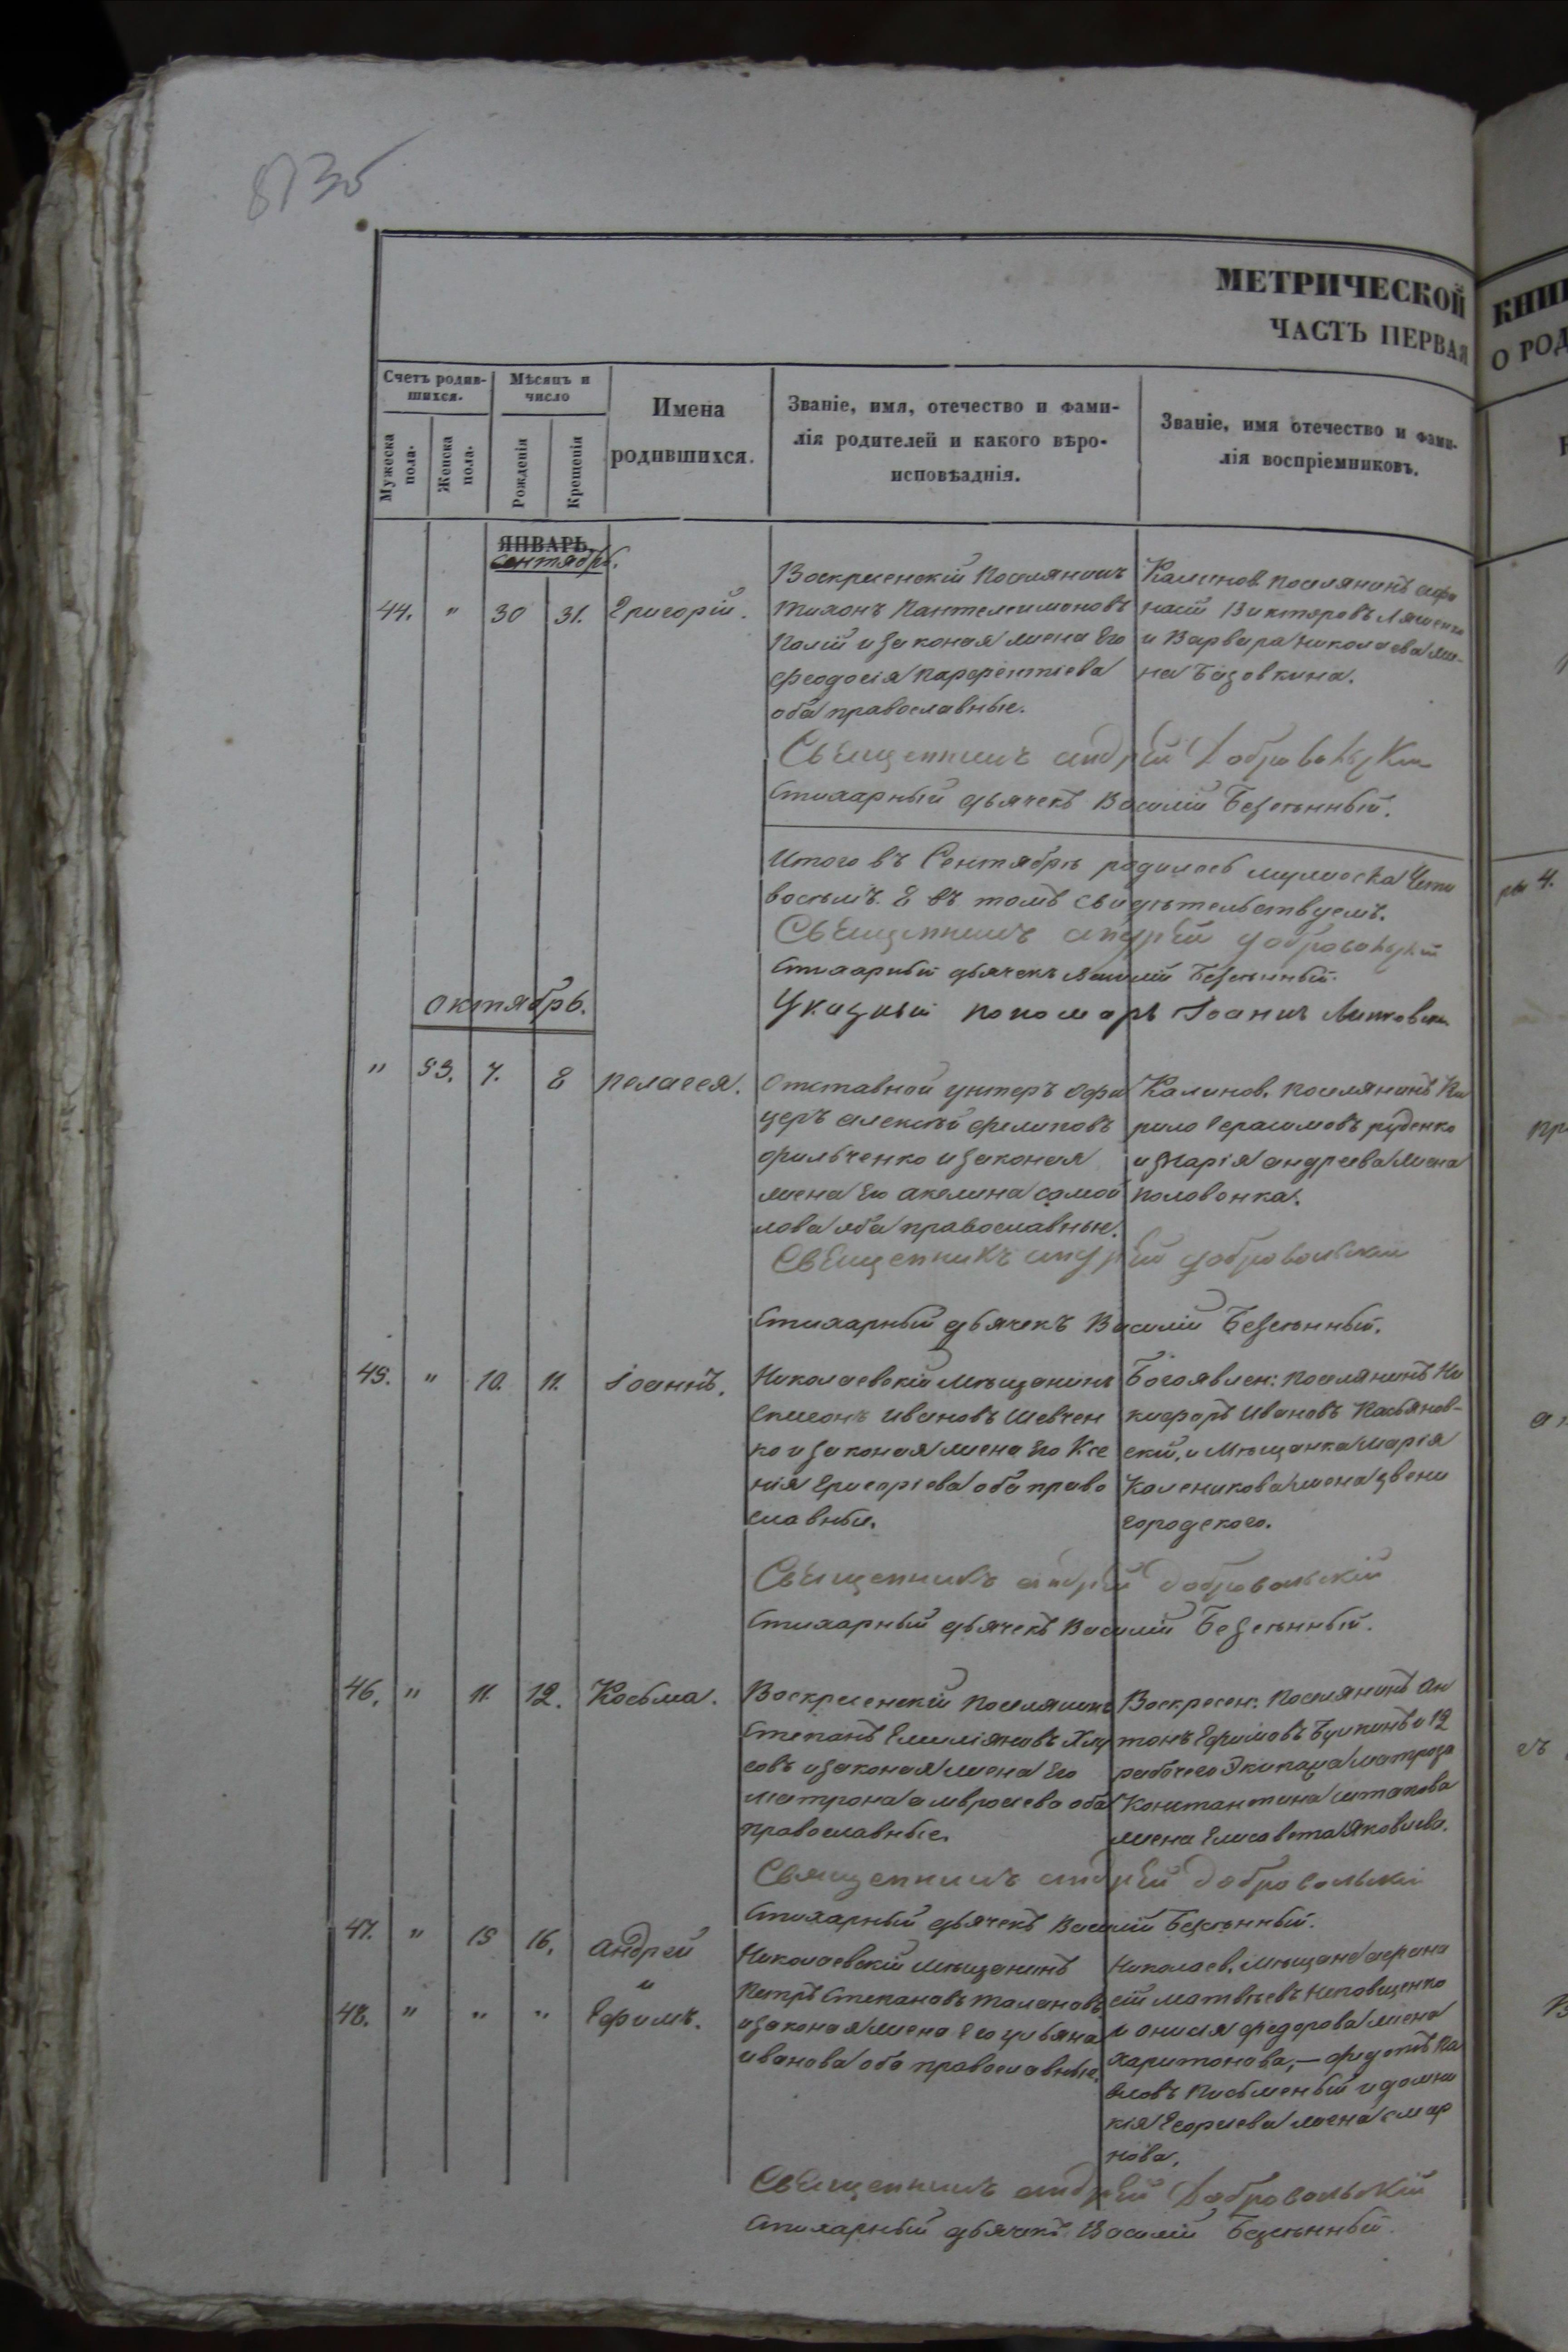 873б
МЕТРИЧЕСКОЙ
ЧАСТЬ ПЕРВАЯ
КНИ
О РОД
Счетъ родив-
шихся.
Мѣсяцъ и
число
Имена
родившихся.
Званіе, имя, отечество и фами-
лія родителей и какого вѣро-
исповѣаднія.
Званіе, имя отечество и фами-
лія воспріемниковъ.
Мужеска
пола.
Женска
пола.
Рожденія
Крещенія
ЯНВАРЬ.
Сентябрь.
44. " 30 31. Григорій.
Воскресенскій поселянинъ
Тихонъ Пантелеимоновъ
Полій и законая жена Его
Феодосія Парфентіева
оба православные.
Калинов. поселянинъ Афа
насій Викторовъ Ляшенко
и Варвара Николаева же-
на Базовкина.
Священникъ Андрей Добровольскій
Стихарный дьячекъ Василій Безсънный.
Итого въ Сентябрѣ родилось мужеска Четы
въ томъ свидѣтельствуемъ.
ре 4.
Священникъ Андрей Добровольскій
Стихарный дьячекъ Василій Безсънный.
Указный пономарь Іоаннъ
Октябрь.
" 53. 7. 8 Пелагея.
Отставной унтеръ Офи
церъ Алексѣй Филиповъ
Фильченко и законая
жена Его Акелина Самой
лова оба православные.
Калинов. поселянинъ Ки
рило Герасимовъ Руденко
и Марія Андреева жена
Половонка.
Священникъ Андрей Добровольскій
Стихарный дьячекъ Василій Безсънный.
45. " 10. 11. Іоаннъ.
Николаевскій мѣщанинъ
Симеонъ Ивановъ Шевчен
ко и законая жена Его Ксе
нія Григоріева оба право
славные.
Богоявлен: поселянинъ Ни
кифоръ Ивановъ Касьянов-
скій, и мѣщанка Марія
Каленикова жена Звени
городского.
Священникъ Андрей Добровольскій
Стихарный дьячекъ Василій Безсънный.
46. " 11. 12. Косьма.
Воскресенскій поселянинъ
Степанъ Емиліяновъ
совъ и законая жена Его
Матрона Амвросиева оба
православные.
Воскресен: поселянинъ Ан
тонъ Ефимовъ и 12
рабочего Экипажа матроза
Константина Штапова
жена Елисавета Яковлева.
Священникъ Андрей Добровольскій
Стихарный дьячекъ Василій Безсънный.
47. " 15 16. Андрей
и
48. " " " Ефимъ.
Николаевскій мѣщанинъ
Петръ Степановъ Талановъ
и законая жена Его Ульяна
Иванова оба православные.
Николаев. мѣщане Афана
сій Матвѣевъ
и Онисія Федорова жена
Харитонова, — Федотъ Па
вловъ Письменый и Домни
кія Георгиева жена Смир
нова.
Священникъ Андрей Добровольскій
Стихарный дьячекъ Василій Безсънный.